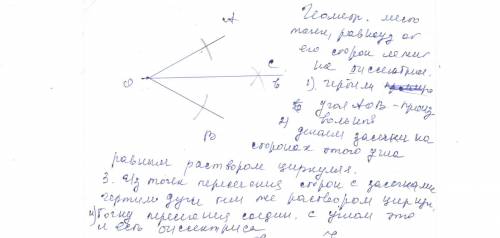 A
Геометр. место
точек, равноуд от
его сторон лежит
на биссектрисе.
C
O
в
1) чертим
угол AOB – произ
вольный
B
2) делаем засечки на
сторонах этого угла
равным раствором циркуля.
3. Из точек пересечения сторон с засечками
чертим дуги тем же раствором цирку.
4) Точку пересечения соедин. с углом это
и есть биссектриса